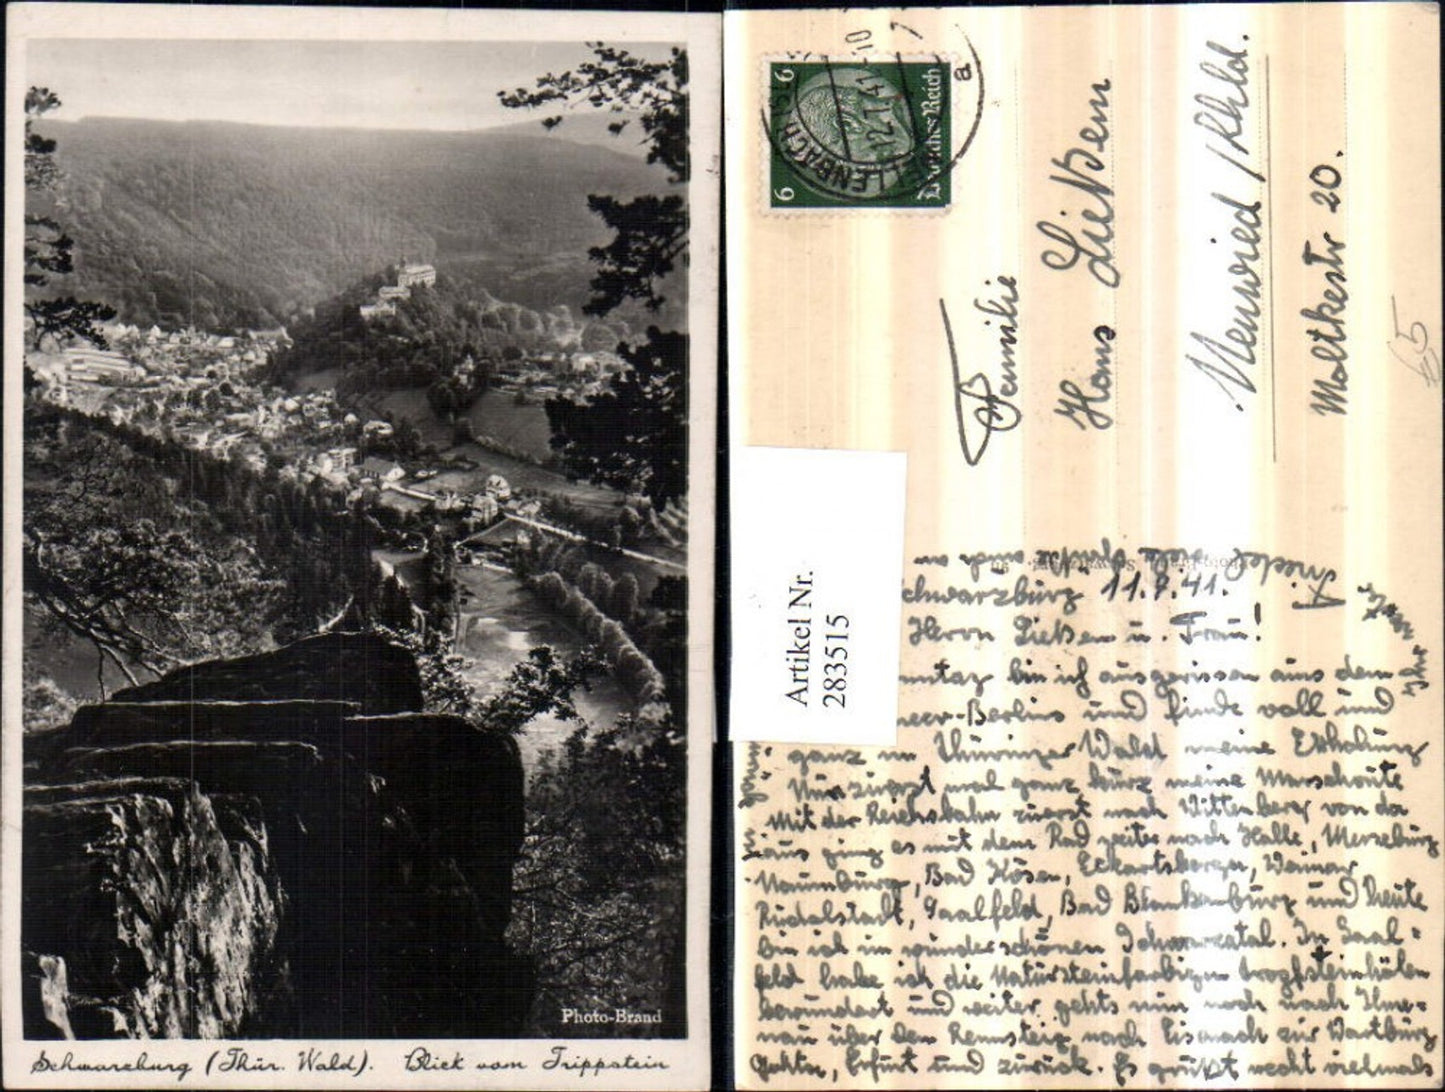 Photo-Brand
Schwarzburg (Thür. Wald). Blick vom Trippstein
6
6
Deutsches Reich
12.7.41-10
a
Familie
Hans Ließem
Neuwied / Rhld.
Moltkestr 20.
65
Artikel Nr.
283515
chwarzburg 11.7.41.
Herrn Ließem u. Frau!
nntag bin ich ausgerissen aus dem
meer-Berlins und finde voll und
ganz im Thüringer Wald meine Erholung
Nun zuerst mal ganz kurz meine Marschroute
Mit der Reichsbahn zuerst nach Wittenberg von da
aus ging es mit dem Rad weiter nach Halle, Merseburg
Naumburg, Bad Kösen, Eckartsberga, Weimar
Rudolstadt, Saalfeld, Bad Blankenburg und heute
bin ich im wunderschönen Schwarzatal. In Saal=
feld habe ich die Natursteinfarbigen Tropfsteinhölen
bewundert und weiter gehts nun noch nach Ilme=
nau über den Rennsteig nach Eisenach zur Wartburg
Gotha, Erfurt und zurück. Es grüßt recht vielmals
Ihr